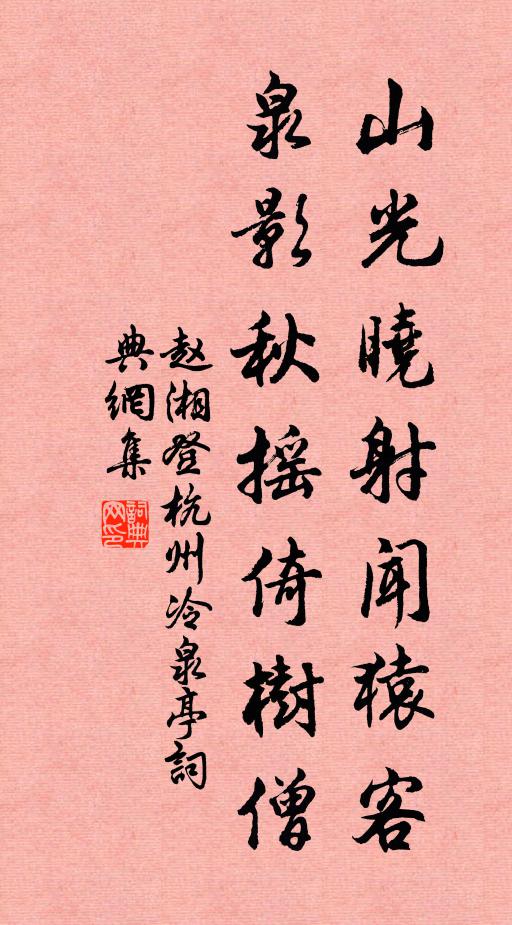 山光曉射聞猿客
泉影秋摇倚樹僧
赵湘登杭州冷泉亭詞
典網集
詞典網印